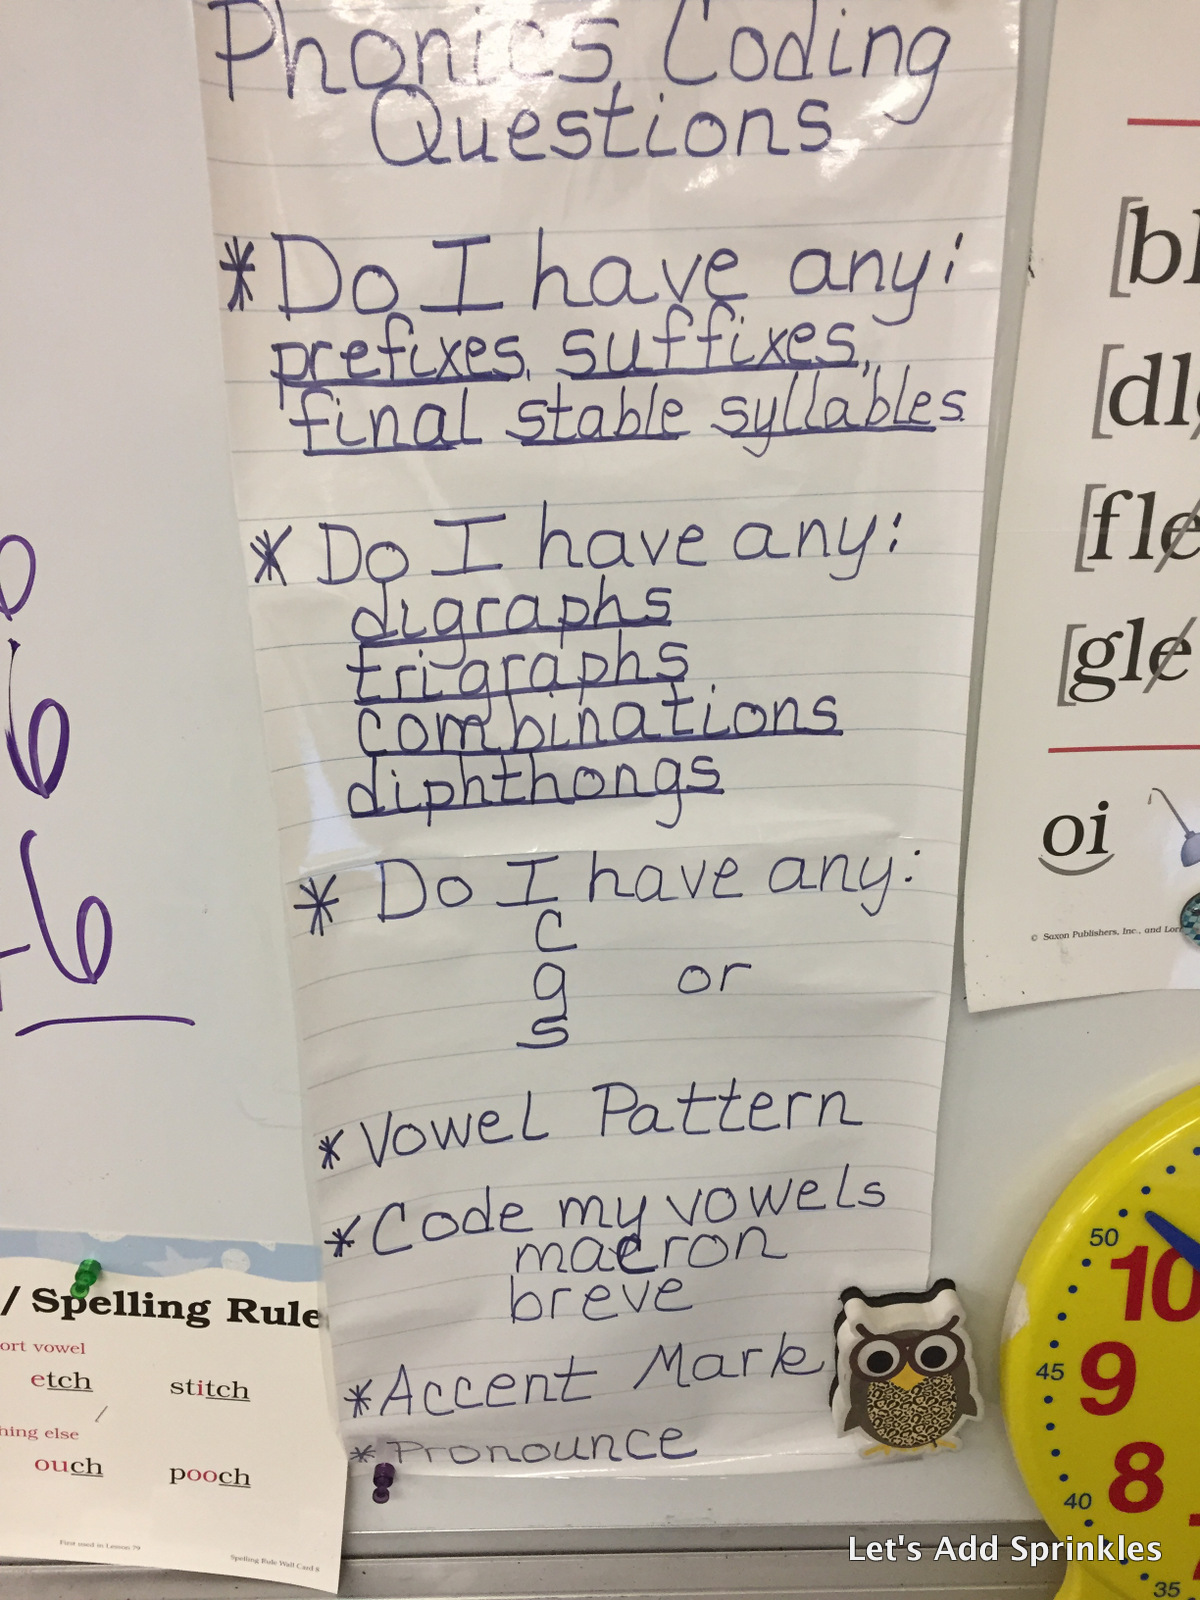 Phonics Coding
Questions
*Do I have any:
prefixes, suffixes,
final stable syllables
* Do I have any:
digraphs
trigraphs
combinations
diphthongs
* Do I have any:
c
g or
s
* Vowel Pattern
* Code my vowels
macron
breve
* Accent Mark
* Pronounce
6
+6
/ Spelling Rule
ort vowel
etch stitch
hing else
ouch pooch
First used in Lesson 79
Spelling Rule Wall Card 8
[bl
[dl
[fle
[gle
oi
© Saxon Publishers, Inc., and Lor
50
10
45
9
40
8
35
Let's Add Sprinkles